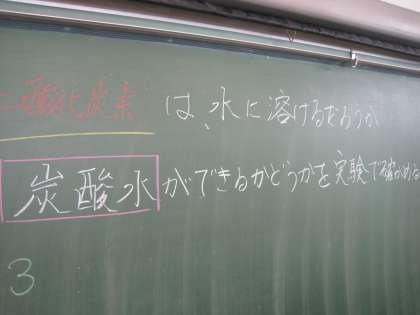 二酸化炭素は、水に溶けるだろうか
炭酸水ができるかどうかを実験で確かめる
3